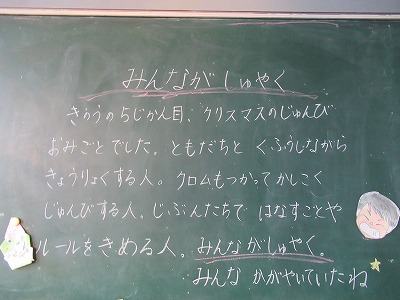 みんなが しゅやく
きのうの5じかん目、クリスマスのじゅんび
おみごとでした。ともだちと くふうしながら
きょうりょくする人。クロムもつかって かしこく
じゅんびする人。じぶんたちで はなすことや
ルールをきめる人。みんながしゅやく。
みんな かがやいていたね